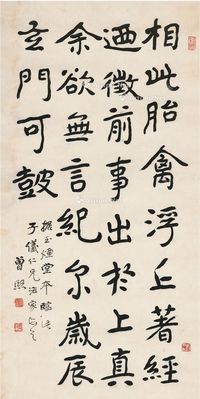 相此胎禽浮丘著經
迺徵前事出於上真
余欲無言紀尔歲辰
玄門可鼓
玉煙堂本臨
子儀仁兄法家
曾熙